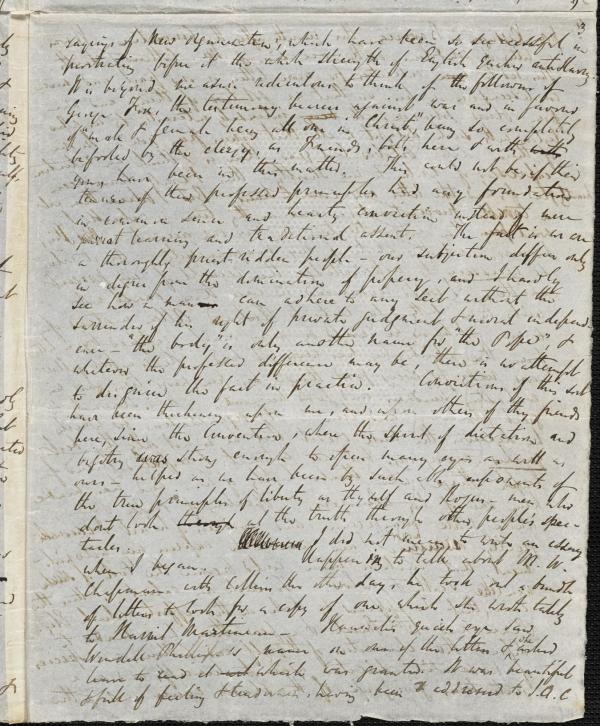 3
sayings of New Organization, which have been so successful in
prostrating before it the whole strength of English Quaker antislavery.
It is beyond measure ridiculous to think of the followers of
George Fox, the testimony bearers against war and in favour
of male & female being all one in Christ, being so completely
befooled by the clergy, as Friends, both here & with
you, have been in this matter. This could not be, if their
tenure of their professed principles had any foundation
in common sense and hearty conviction instead of mere
parrot learning and traditional assent. The fact is we are
a thoroughly priest ridden people - our subjection differs only
in degree from the domination of popery, and I hardly
see how a man can adhere to any Sect without the
surrender of his right of private judgment & moral independ-
ence - "the body" is only another name for "the Pope" &
whatever the professed difference may be, there is no attempt
to disguise the fact in practice. Convictions of this sort
have been thickening upon me, and upon others of thy friends
here, since the Convention, where the spirit of dictation and
bigotry was strong enough to open many eyes as well as
ours - helped as we have been by such able exponents of
the true principles of liberty as thyself and Rogers - men who
dont look at the truth through other peoples spec-
tacles. I did not mean to write an essay
when I began. Happening to talk about M. W.
Chapman with Collins the other day, he took out a bundle
of letters to look for a copy of one which she wrote lately
to Harriet Martineau - quick eye saw
Wendell Phillips's name on one of the letters & she asked
leave to read it which was granted. It was a beautiful
spill of feeling & , having been addressed to J.A.C